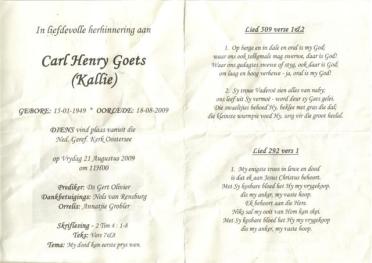 In liefdevolle herhinnering aan
Carl Henry Goets
(Kallie)
GEBORE: 15-01-1949 * OORLEDE: 18-08-2009
DIENS vind plaas vanuit die
Ned. Geref. Kerk Oostersee
op Vrydag 21 Augustus 2009
om 11H00
Prediker: Ds Gert Olivier
Dankbetuigings: Nols van Rensburg
Orrelis: Annatjie Grobler
Skriflesing - 2 Tim 4 : 1-8
Teks: Vers 7&8
Tema: My dood kan eerste prys wen.
Lied 509 verse 1&2
1. Op berge en in dale en oral is my God;
waar ons ook telkemale mag swerwe, daar is God!
Waar ons gedagtes swewe of styg, ook daar is God;
om laag en hoog verhewe - ja, oral is my God!
2. Sy troue Vaderoë sien alles van naby;
ons leef uit Sy vermoë - word deur sy Gees gelei.
Die swaeltjies behoed Hy, beklee met gras die dal;
die kleinste wurmpie voed Hy, sorg vir die groot heelal.
Lied 292 vers 1
1. My enigste troos in lewe en dood
is dat ek aan Jesus Christus behoort.
Met Sy kosbare bloed het Hy my vrygekoop,
die my anker, my vaste hoop.
Ek behoort aan die Here.
Niks sal my ooit van Hom kan skei.
Met Sy kosbare bloed het Hy my vrygekoop
die my anker, my vaste hoop.